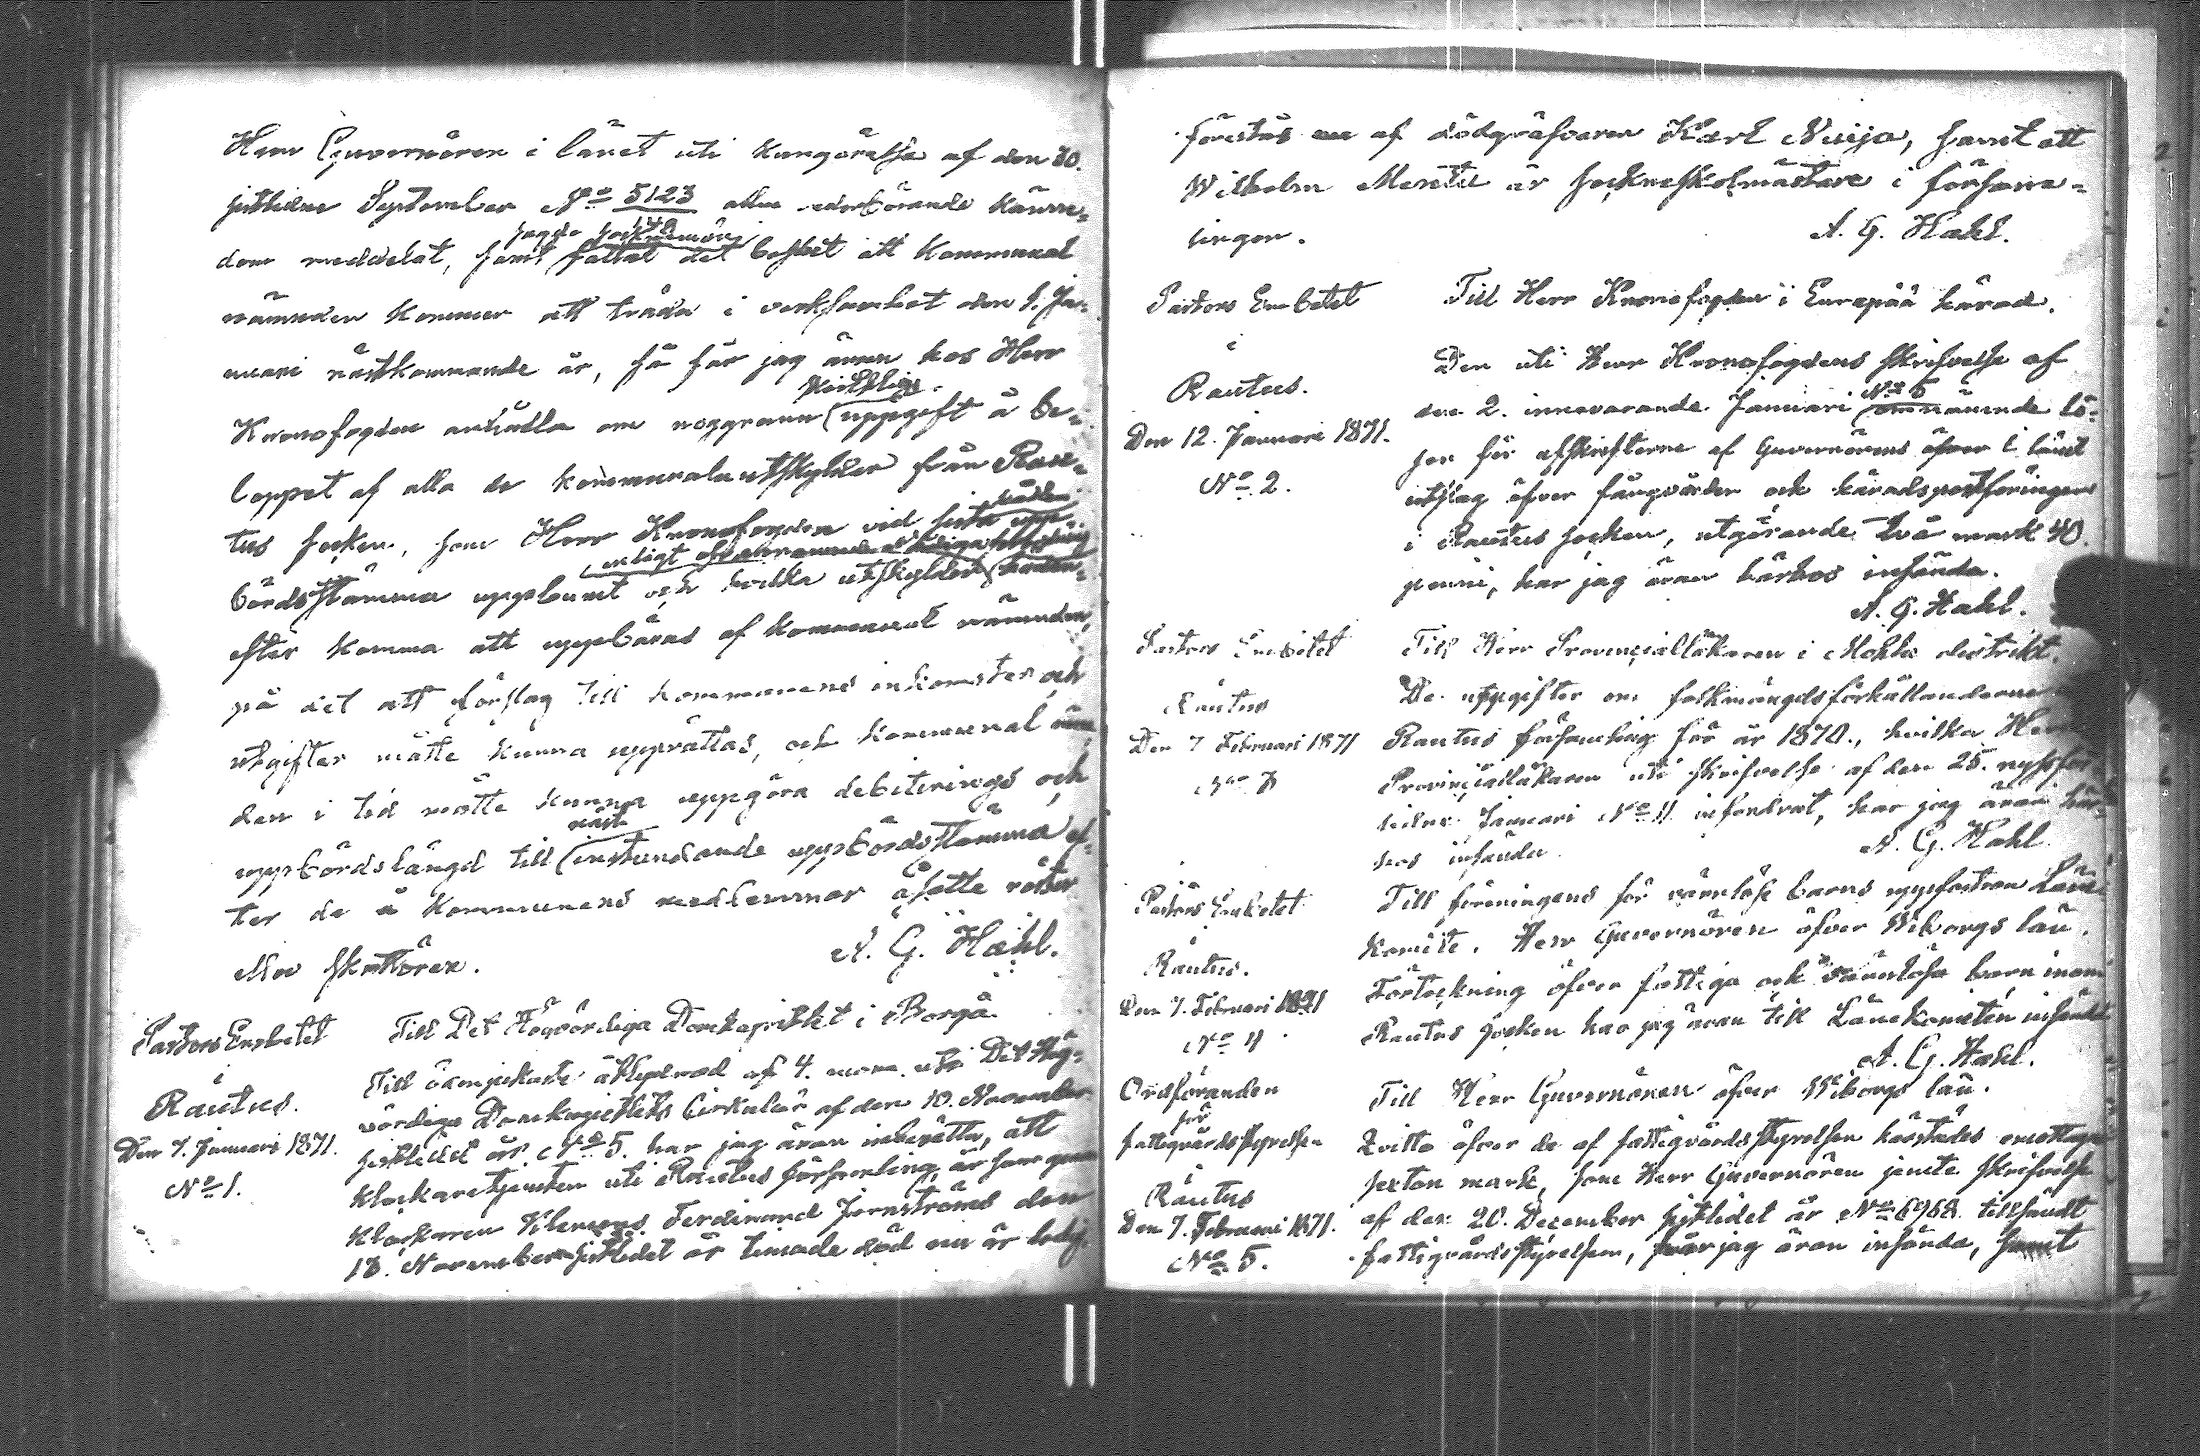 Herr Guvernören i länet uti kungörelse af den 30.
sistlidne September No 5123 allen vederbörande känne-
140
sagde sockenemän
dom meddelat, samt fattat det beslut att kommunal
nämnden kommer att träda i verksamhet den 1. Ja-
nuari nästkommande år, så får jag ännu hos Herr
skriftlig
Kronofogden anhålla om noggrann uppgift å be-
loppet af alla de kommunala utskylder från Rau-
tus socken, som Herr Kronofogden vid sista upp-
enligt
bördsstämma uppburit och hvilka utskylder
efter komma att uppbäras af kommunal nämnden,
på det att förslag till kommunens inkomster och
utgifter måtte kunna upprättas, och kommunal näm
den i tid måtte kunna uppgöra debiterings och
näst
uppbördslängd till instundande uppbördsstämma ef-
ter de å kommunens medlemmar åsatte
skattören.
A. G. Hahl.
Pastors Embetet
i
Rautus.
Den 7. Januari 1871.
No 1.
Till Det Högvördiga Domkapitlet i Borgå
Till ödmjukaste åtlydnad af 4. mom. uti Det Hög-
vördiga Domkapitlets Cirkulär af den 10. November
sistlidet år No 5. har jag äran inberätta, att
klockaretjensten uti Rautus församling, är som genom
klockaren Klemens Ferdinand Jernströms den
18. November sistlidet år timade död nu är ledig
förestås af dödgräfvaren Karl Nuija, samt att
Wilhelm Mentu är sockneskolmästare i försam-
lingen.
A. G. Hahl.
Pastors Embetet
i
Rautus.
Den 12. Januari 1871.
No 2.
Till Herr Kronofogden i Eurepää härad.
Den uti Herr Kronofogdens skrifvelse af
No 5
den 2. innevarande Januari omnämnde lö-
sen för afskrifterne af Guvernörens öfver länet
utslag öfver fångvården och häradspostföringen
i Rautus socken, utgörande Två mark 40
penni, har jag äran härhos insända.
A. G. Hahl.
Pastors Embetet
i
Rautus
Den 7 Februari 1871
No 3
Till Herr Provincialläkaren i Mohla distrikt.
De uppgifter om folkmängdsförhållanderne
Rautus församling för år 1870., hvilka Herr
Provincialläkaren uti skrifvelse af den 25. nyssför-
lidne Januari No 11 infordrat, har jag äran här-
hos insända.
A. G. Hahl.
Pastors Embetet
i
Rautus.
Den 7. Februari 1871
No 4
Till föreningens för värnlösa barns uppfostran Läns
komité. Herr Guvernören öfver Wiborgs län.
Förteckning öfver fattiga och värnlösa barn inom
Rautus socken har jag äran till Länekomitén insända
A. G. Hahl.
Ordföranden
för
fattigvårdsstyrelsen
i
Rautus
Den 7. Februari 1871.
No 5.
Till Herr Guvernören öfver Wiborgs län.
Qvitto öfver de af fattigvårdsstyrelsen härstädes emottagna
sexton mark, som Herr Guvernören jemte skrifvelse
af den 20. December sistlidet år No 6968 tillsändt
fattigvårdsstyrelsen, får jag äran insända, samt